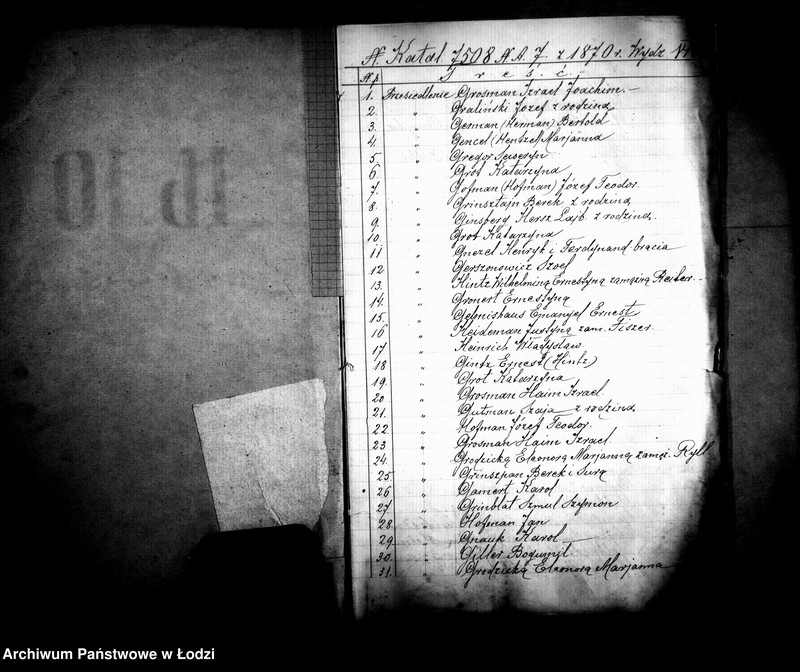 N. Katal 7508 N A. 7. z 1870 r. Wydz
N p. Treść
1. Przesiedlenie Grosman Izrael Joachim. —
2. " Graliński Józef z rodziną
3. " German (Herman) Bertold
4. " Gencel (Hentzel) Marjanna
5 " Gregor Seweryn
6 " Grot Katarzyna
7. " Gofman (Hofman) Józef Teodor.
8. " Grinsztajn Berek z rodziną
9. " Ginsberg Hersz Lajb z rodziną
10. " Grot Katarzyna
11 " Gnezel Henryk i Ferdynand bracia
12 " Gerszonowicz Szoel
13. " Hintz Wilhelminą Ernestyną zamężną Reiter. -
14. " Gronert Ernestyną
15. " Gelmishaus Emanuel Ernest
16 " Heideman Justyną zam. Fiszer
17 " Heinrich Władysław
18 " Gintz Ernest (Hintz)
19. " Grot Katarzyna
20. " Grosman Haim Izrael
21. " Gutman Szaja z rodziną
22 " Hofman Józef Teodor.
23 " Grosman Haim Izrael
24. " Grodzicką Eleonorą Marjanną zamęż. Ryll
25 " Grinszpan Berek i Surą
26 " Gamert Karol
27. " Grinblat Szmul Szymon
28 " Hofman Jan
29. " Gnauk Karol
30. " Giller Bogumił
31. " Grodzicką Eleonorą Marjanna
Archiwum Państwowe w Łodzi